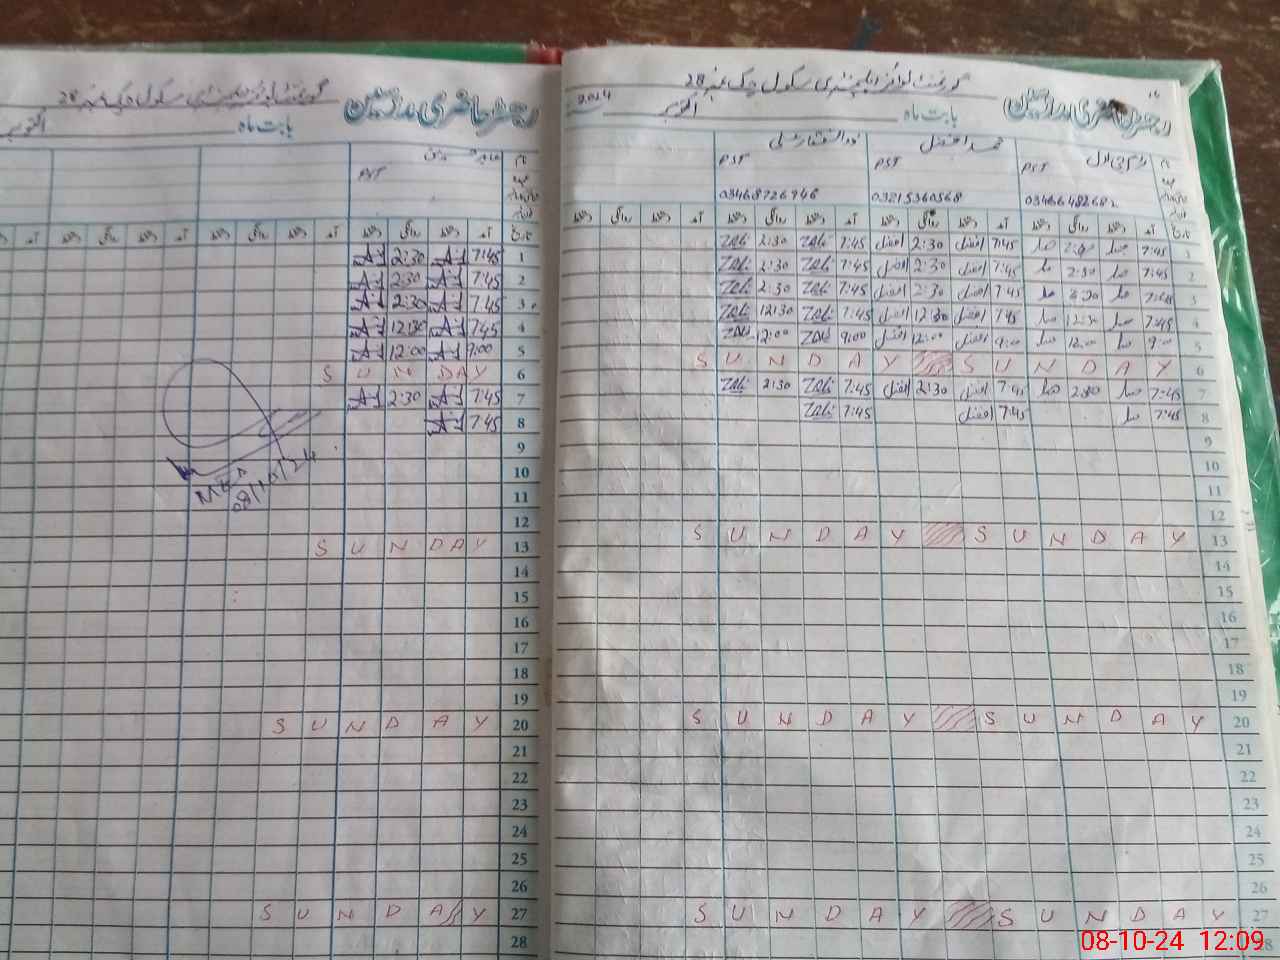 گورنمنٹ بوائز ایلیمنٹری سکول چک نمبر 28
رجسٹر حاضری مدرسین
بابت ماہ اکتوبر
PST
آمد دستخط روانگی دستخط آمد دستخط روانگی دستخط آمد دستخط
1 7:45 2:30
2 7:45 2:30
3 7:45 2:30
4 7:45 12:30
5 9:00 12:00
6 SUNDAY
7 7:45 2:30
8 7:45
9
10
11
12
13 SUNDAY
14
15
16
17
18
19
20 SUNDAY
21
22
23
24
25
26
27 SUNDAY
28
MEA
08/10/24
گورنمنٹ بوائز ایلیمنٹری سکول چک نمبر 28
رجسٹر حاضری مدرسین
بابت ماہ اکتوبر 2024
محمد افضل ذوالفقار علی
PST PST PST
03215360568 03468726946
تاریخ آمد دستخط روانگی دستخط آمد دستخط روانگی دستخط آمد دستخط روانگی دستخط آمد دستخط روانگی دستخط
1 7:45 2:30 7:45 افضل 2:30 افضل 7:45 ZAli 2:30 ZAli
2 7:45 2:30 7:45 افضل 2:30 افضل 7:45 ZAli 2:30 ZAli
3 7:45 2:30 7:45 افضل 2:30 افضل 7:45 ZAli 2:30 ZAli
4 7:45 12:30 7:45 افضل 12:30 افضل 7:45 ZAli 12:30 ZAli
5 9:00 12:00 9:00 افضل 12:00 افضل 9:00 ZAli 12:00 ZAli
6 SUNDAY SUNDAY
7 7:45 2:30 7:45 افضل 2:30 افضل 7:45 ZAli 2:30 ZAli
8 7:45 7:45 افضل 7:45 ZAli
9
10
11
12
13 SUNDAY SUNDAY
14
15
16
17
18
19
20 SUNDAY SUNDAY
21
22
23
24
25
26
27 SUNDAY SUNDAY
28
08-10-24 12:09